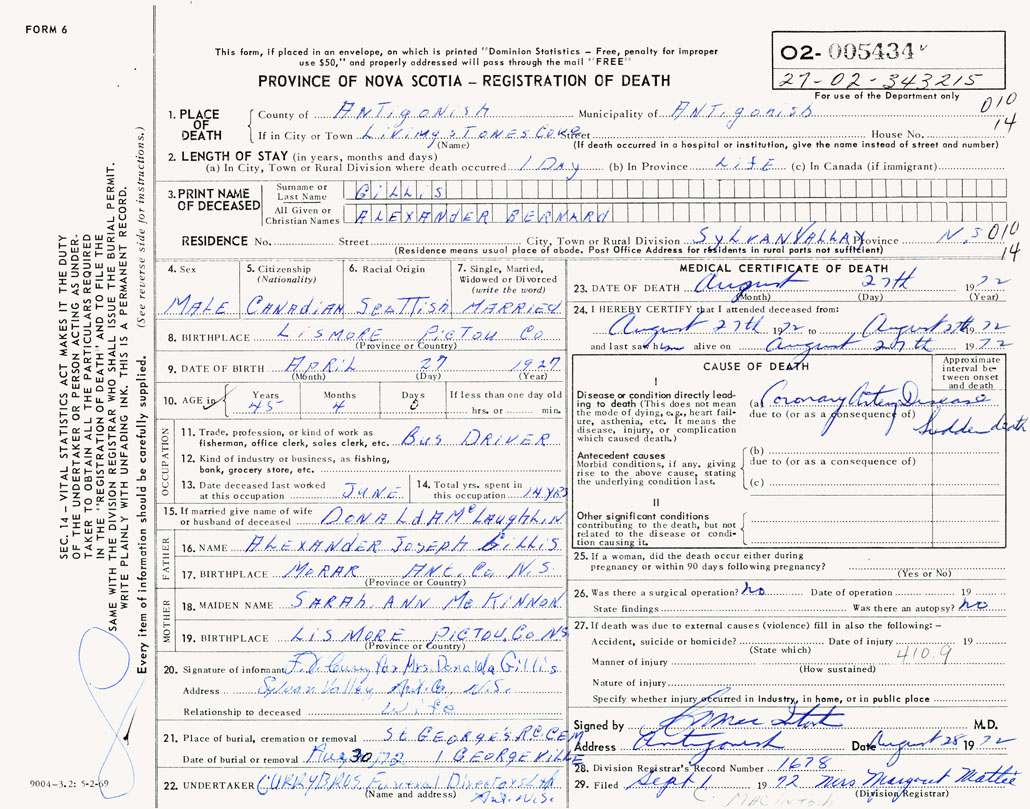 FORM 6
This form, if placed in an envelope, on which is printed "Dominion Statistics – Free, penalty for improper
use $50," and properly addressed will pass through the mail "FREE"
PROVINCE OF NOVA SCOTIA – REGISTRATION OF DEATH
02-005434
27-02-343215
For use of the Department only
010
14
1. PLACE OF DEATH
County of ANTigonish Municipality of ANTigonish
If in City or Town Livingstones Cove Street House No.
(Name) (If death occurred in a hospital or institution, give the name instead of street and number)
2. LENGTH OF STAY (in years, months and days)
(a) In City, Town or Rural Division where death occurred 1 Day (b) In Province Life (c) In Canada (if immigrant)
3. PRINT NAME OF DECEASED
Surname or Last Name GILLIS
All Given or Christian Names ALEXANDER BERNARD
RESIDENCE No. Street City, Town or Rural Division SYLVAN VALLAY Province N.S 010
(Residence means usual place of abode. Post Office Address for residents in rural parts not sufficient) 14
4. Sex MALE
5. Citizenship (Nationality) CANADIAN
6. Racial Origin SCOTTISH
7. Single, Married, Widowed or Divorced (write the word) MARRIED
8. BIRTHPLACE LISMORE PICTOU CO
(Province or Country)
9. DATE OF BIRTH APRIL 27 1927
(Month) (Day) (Year)
10. AGE in Years 45 Months 4 Days 0 If less than one day old hrs. or min.
OCCUPATION
11. Trade, profession, or kind of work as fisherman, office clerk, sales clerk, etc. BUS DRIVER
12. Kind of industry or business, as fishing, bank, grocery store, etc.
13. Date deceased last worked at this occupation JUNE
14. Total yrs. spent in this occupation 14 YRS
15. If married give name of wife or husband of deceased DONALDA McLaughlin
FATHER
16. NAME ALEXANDER JOSEPH GILLIS
17. BIRTHPLACE MORAR ANT. CO N.S.
(Province or Country)
MOTHER
18. MAIDEN NAME SARAH ANN McKINNON
19. BIRTHPLACE LISMORE PICTOU. CO NS
(Province or Country)
20. Signature of informant Curry for Mrs. Donalda Gillis
Address Sylvan Valley, Ant. Co., N.S.
Relationship to deceased Wife
21. Place of burial, cremation or removal ST GEORGES R.C. CEM
Date of burial or removal Aug 30/72 GEORGEVILLE
22. UNDERTAKER CURRY BROS Funeral Directors Ltd
(Name and address) Ant. N.S.
MEDICAL CERTIFICATE OF DEATH
23. DATE OF DEATH August 27th 1972
(Month) (Day) (Year)
24. I HEREBY CERTIFY that I attended deceased from:
August 27th 1972 to August 27th 1972
and last saw him alive on August 27th 1972
CAUSE OF DEATH
Approximate interval between onset and death
I
Disease or condition directly leading to death (This does not mean the mode of dying, e.g., heart failure, asthenia, etc. It means the disease, injury, or complication which caused death.)
(a) Coronary Artery Disease
due to (or as a consequence of) Sudden death
Antecedent causes
Morbid conditions, if any, giving rise to the above cause, stating the underlying condition last.
(b)
due to (or as a consequence of)
(c)
II
Other significant conditions
contributing to the death, but not related to the disease or condition causing it.
25. If a woman, did the death occur either during pregnancy or within 90 days following pregnancy?
(Yes or No)
26. Was there a surgical operation? No Date of operation 19
State findings Was there an autopsy? No
27. If death was due to external causes (violence) fill in also the following: –
Accident, suicide or homicide? Date of injury 19
(State which) 410.9
Manner of injury
(How sustained)
Nature of injury
Specify whether injury occurred in industry, in home, or in public place
Signed by M.D.
Address Antigonish Date August 28 1972
28. Division Registrar's Record Number 1678
29. Filed Sept 1 1972 Mrs Margaret Mattie
(Division Registrar)
MACINTOSH
SEC. 14 – VITAL STATISTICS ACT MAKES IT THE DUTY
OF THE UNDERTAKER OR PERSON ACTING AS UNDER.
TAKER TO OBTAIN ALL THE PARTICULARS REQUIRED
IN THE "REGISTRATION OF DEATH" AND TO FILE THE
SAME WITH THE DIVISION REGISTRAR WHO SHALL ISSUE THE BURIAL PERMIT.
WRITE PLAINLY WITH UNFADING INK. THIS IS A PERMANENT RECORD.
Every item of information should be carefully supplied. (See reverse side for instructions.)
9004-3.2: 5-2-69